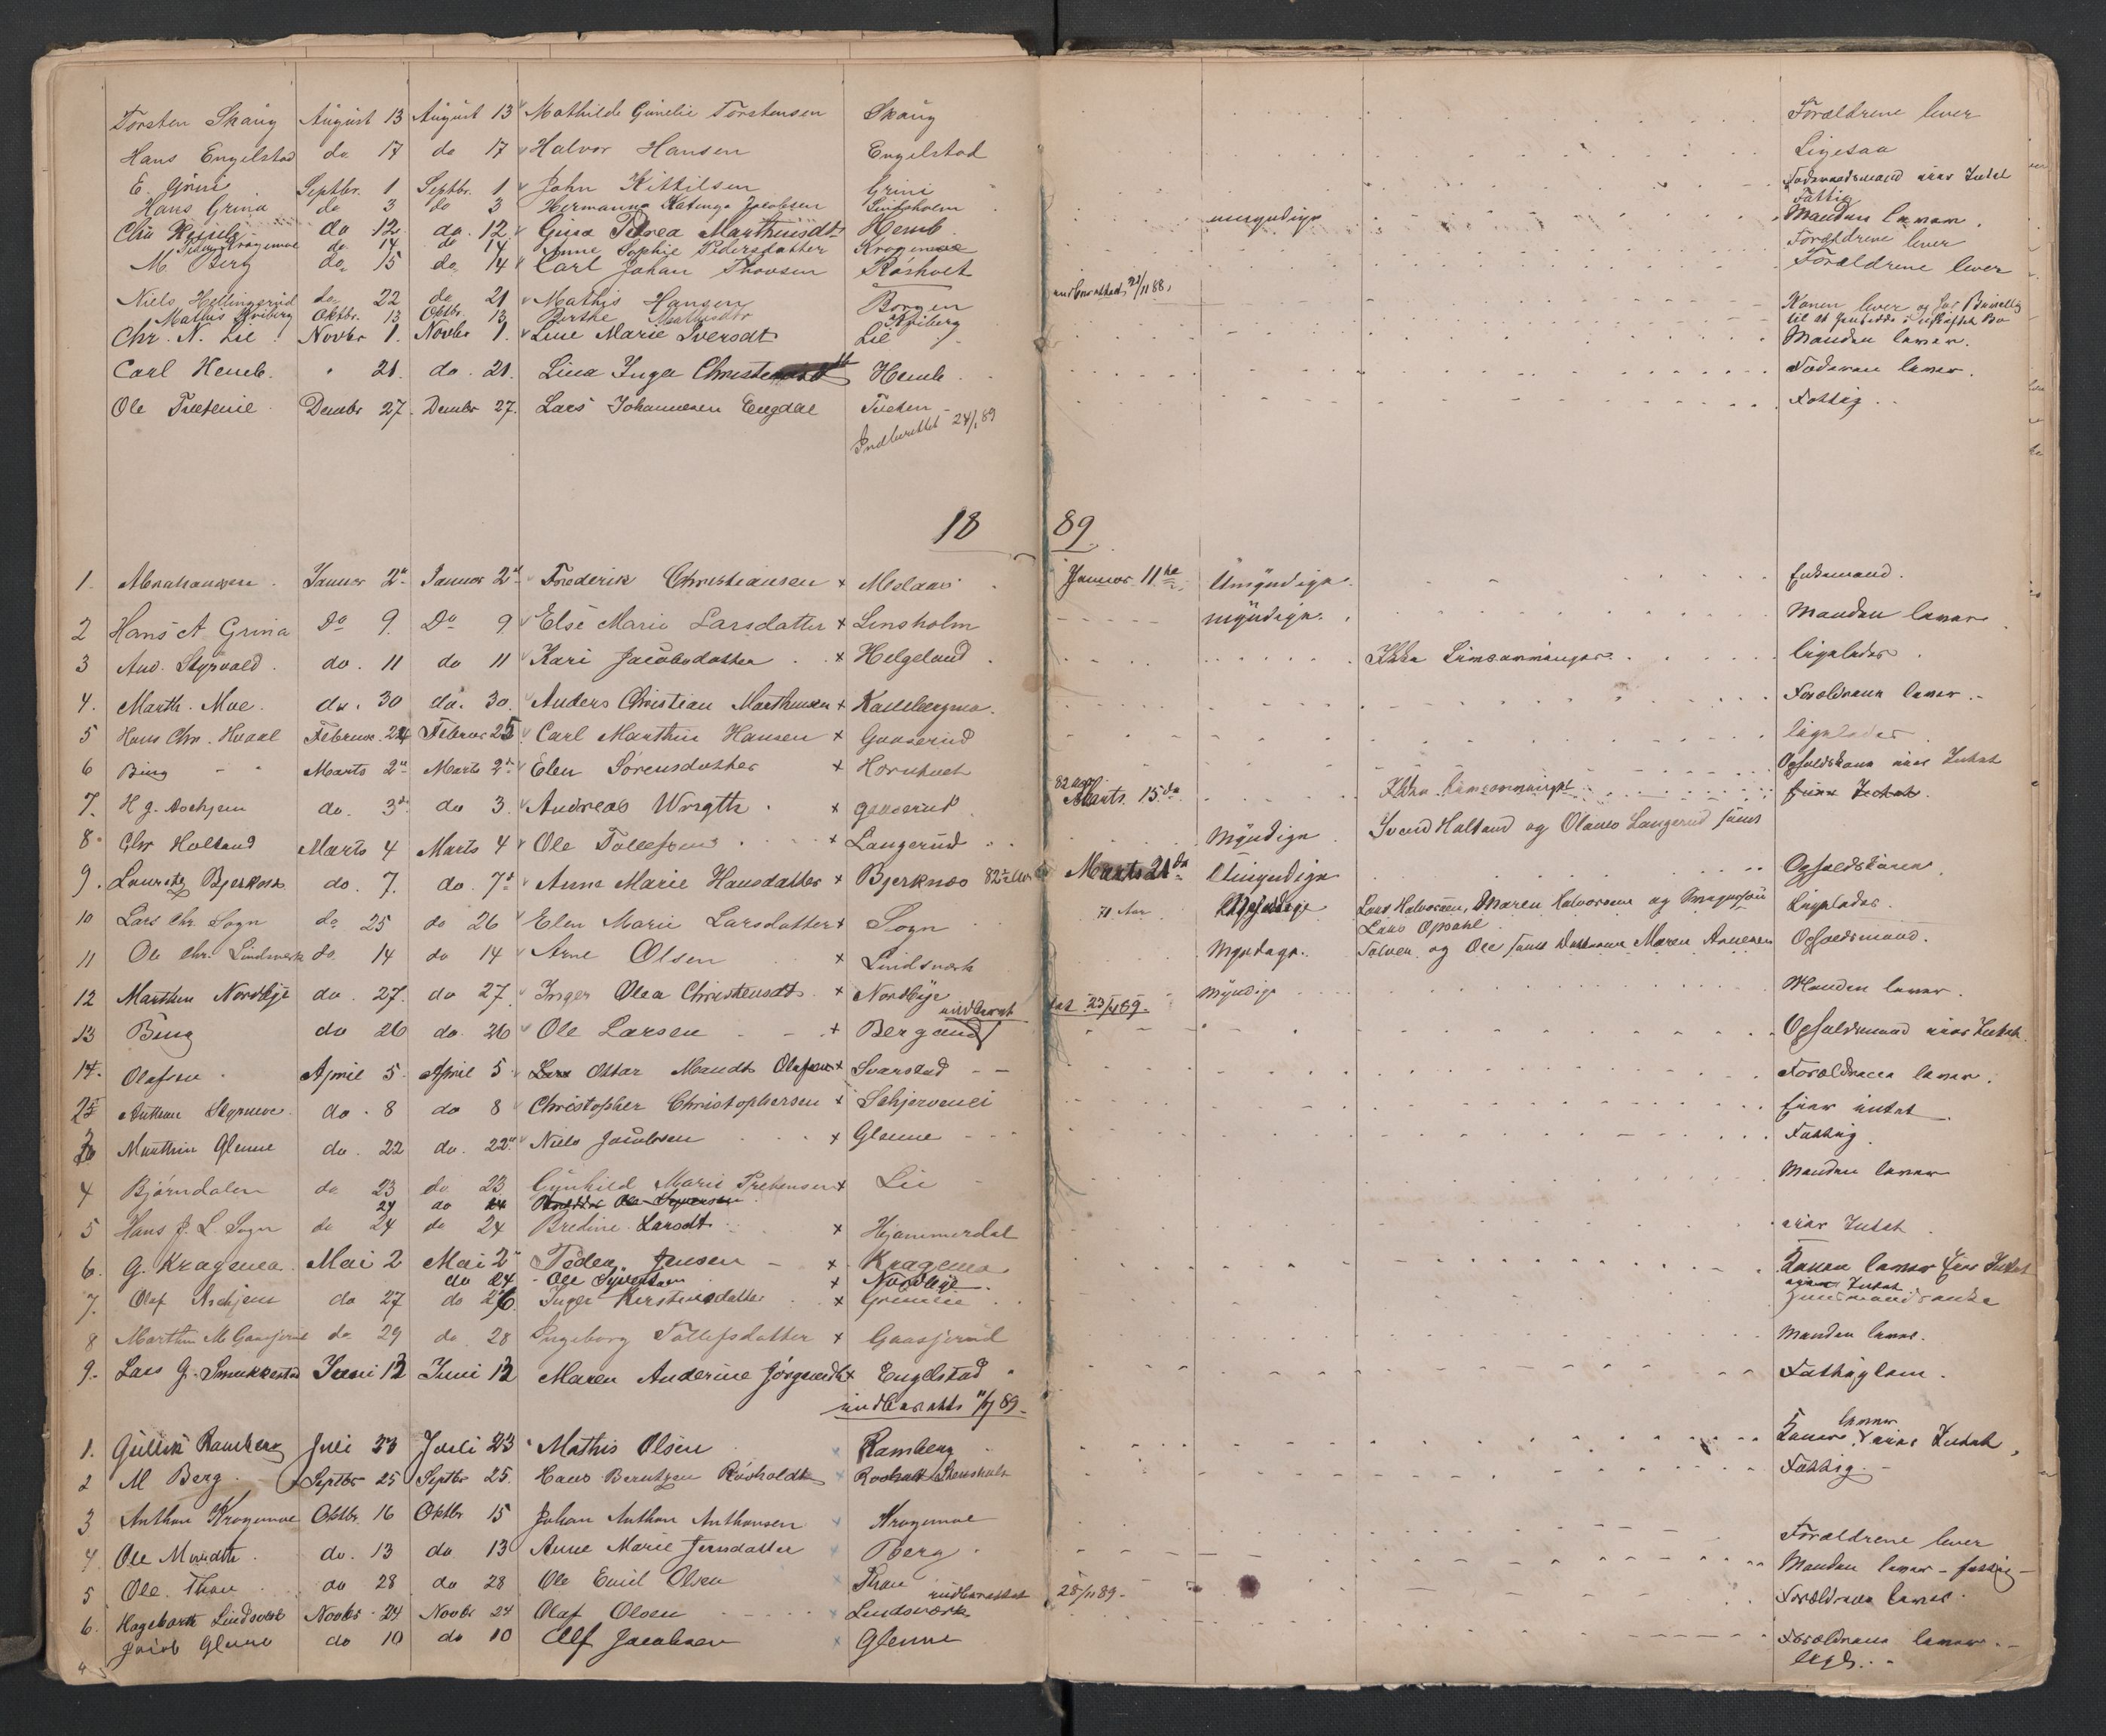 Torsten Skaug August 13 August 13 Mathilde Gunelie Torstensen Skaug Forældrene lever
Hans Engelstad do 17 do 17 Halvor Hansen Engelstad Ligesaa
E. Grini Septbr. 1 Septbr. 1 John Kittilsen Grini Foderaadsmand eier Intet
Hans Grina do 3 do 3 Hermanna Katinga Jacobsen Linsholm Fattig
Chr Hemb do 12 do. 12 Gina Petrea Marthinsdt Hemb. umyndige Manden lever.
Kragemoe do 14 do 14 Anne Sophie Pedersdatter Kragemoe Forældrene lever
M. Berg do. 15 do. 14 Carl Johan Thovsen Røsholt Forældrene lever
indberettet 21/11 88.
Niels Hellingsrud do 22 do 21 Mathis Hansen Borgen Konen lever og har Bevilling
Mathis Wiberg Oktbr. 13 Oktbr. 13 Berthe Mathisdtr Wiberg til at hensidde i uskiftet Bo
Chr. N. Lie Novbr 1. Novbr 1. Line Marie Iversdt Lie Manden lever.
Carl Hemb. 21. do. 21. Lina Inga Hemb Foderaad lever.
Ole Decmbr 27. Decmbr 27. Lars Johannesen Engdal Fattig
Indberettet 24/1 89
18 89.
1. Abrahamsen. Januar 2. Januar 2 Frederik Christiansen x Meslaas Januar 11te Umyndige Enkemand.
2 Hans A Grina Do 9. Do 9 Else Marie Larsdatter x Linsholm myndige. Manden lever
3 And. Styrvold. do. 11 do 11 Kari Jacobsdatter x Helgeland Ikke Livsarvinger. ligeledes.
4. Marth. Moe. do. 30 do. 30. Anders Christian Marthinsen x Kallebergmo. Forældrene lever.
5 Hans Chr. Hvaal Februar. 24 Februar 25 Carl Marthin Hansen x Gaaserud ligeledes.
6 Bing Marts 2 Marts 2 Elen Sørensdatter x Hornholt Opholdskone eier Intet
7. H G. Aschjem do. 3 do 3. Andreas Wrigth x gaaserud. 82 Marts 15de Ikke Livsarvinger
8 Chr Holtand Marts 4 Marts 4 Ole Tollefsen x Langerud Myndige Svend Holtand og Olaves Langerud
9. Laurets Bjerknes do. 7. do. 7 Anne Marie Hansdatter x Bjerknes 82 Marts 21de Umyndige Opholdskone
10 Lars Chr. Sogn do 25 do 26 Elen Marie Larsdatter x Sogn 71 Aar Lars Halvorsen, Maren Halvorsen og Ligeledes.
Lars Opsahl
11 Ole Chr. Lindsverk do. 14 do 14 Arne Olsen x Lindsverk Myndige. og Ole samt Datteren Maren Arnesen Opholdsmand.
12 Marthin Nordbye do. 27. do 27. Inger Olea Christensdt. x Nordbye Myndige Manden lever.
indberettet 23/4 89.
13 Bing do 26 do. 26 Ole Larsen x Bergand Opholdsmand eier Intet.
14. Olafsen. April 5 April 5 Ottar Mandt Olafsen x Svarstad Forældrene lever.
2 Anthon Styrmoe. do. 8 do 8 Christopher Christophersen x Schjervenei Eier intet.
3 Marthin Glenne do. 22 do. 22. Niels Jacobsen x Glenne Fattig.
4 Bjørndalen do 23 do 23 Gunhild Marie Prebensen x Lie Manden lever
24 do 24
5 Hans J. L. Sogn do 24 do 24 Bredine Larsdt. x Hjammerdal eier Intet
6. G. Kragemoe. Mai 2 Mai 2 Peder Jensen x Kragemo Konen lever Eier Intet
do 24 Ole Syvertsen x Nordbye. Intet
7. Olaf Aschjem do 27 do 26. Inger Kerstinsdatter x
8 Marthin M Gaasjerud do 29 do. 28 Ingeborg Tollefsdatter x Gaasjerud Manden lever.
9. Lars G. Smukkestad Juni 13 Juni 13 Maren Anderine Jørgensdt x Engelstad Fattiglem.
indberettet 11/7 89.
1. Gullik Ramberg Juli 23 Juli 23 Mathis Olsen Ramberg Konen lever eier Intet
2 M Berg. Septbr 25 Septbr 25. Hans Berntzen Røsholdt Fattig.
3 Anthon Kragemoe Oktbr. 16 Oktbr 15 Johan Anthon Anthonsen Kragemoe Forældrene lever
4 Ole Mundth. do. 13 do. 13 Anne Marie Jensdatter Berg. Manden lever - fattig
5 Ole. Thon do 28 do 28 Ole Emil Olsen Thon Forældrene lever.
indberettet 28/11 89.
6. Hagebarth Lindsverk Novbr. 24 Novbr 24 Olaf Olsen Lindsverk Forældrene lever.
Jacob Glenne do 10 do 10 Alf Jacobsen Glenne